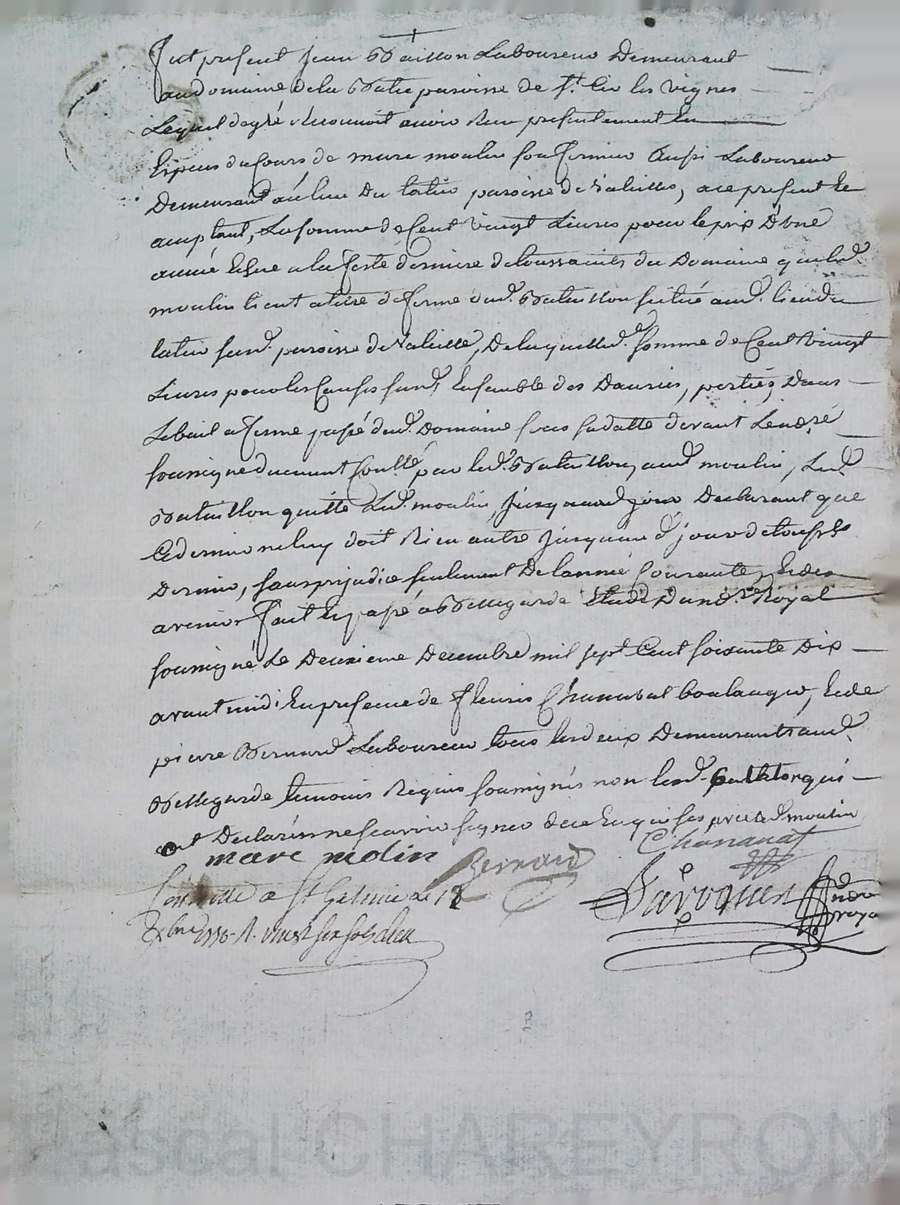 fut present Jean Bataillon Laboureur Demeurant
au domaine de la Batie paroisse de St. Cir les vignes
Lequel de gré a Reconnut avoir Reçu presentement En
Especes du Cours de marc moulin son fermier Aussi Laboureur
Demeurant au lieu Du latier paroisse de Valeille, a ce present Et
acceptant, La somme de Cent vingt Livres pour le prix D'une
année Echue a la feste derniere de toussaints du Domaine que led.
moulin tient a titre de ferme dud. Bataillon situé aud. lieu du
latier susd. paroisse de Valeille, De laquelle d. somme de Cent vingt
Livres pour les Causes susd. Ensemble des Danrées, portées Dans
Le bail a ferme passé dud. Domaine sous sa datte devant Le no.re
soussigné
Bataillon quitte Led. moulin, Jusquaud. jour Declarant que
Ce dernier ne luy doit Rien autre Jusquau d. jour de touss.ts
Dernier, sans prejudice seulement De lannée Courante, Et des
avenir fait Et passé a Bellegarde Etude Du no.re Royal
soussigné Le Deuxieme Decembre mil sept Cent soixante Dix
avant midi En presence de fleuris Chanavat boulanger, Et de
pierre Bernard Laboureur tous les deux Demeurants aud.
Bellegarde temoins Requis soussignés non led. Bataillon qui
ont Declaré ne scavoir signer de ce Enquis avec led. moulin
marc molin Bernard Chanavat
Controllé a St Galmier le 18
Xbre 1770 R. treize sols
Royal